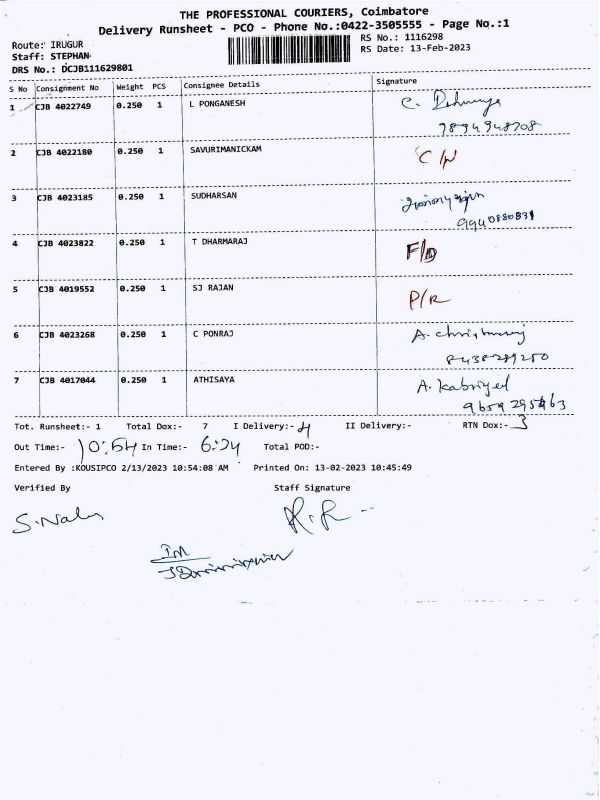 THE PROFESSIONAL COURIERS, Coimbatore
Delivery Runsheet - PCO - Phone No.:0422-3505555 - Page No.:1
Route: IRUGUR
Staff: STEPHAN
DRS No.: DCJB111629801
RS No.: 1116298
RS Date: 13-Feb-2023
S No Consignment No Weight PCS Consignee Details Signature
1 CJB 4022749 0.250 1 L PONGANESH C.
7894948708
2 CJB 4022180 0.250 1 SAVURIMANICKAM C/N
3 CJB 4023185 0.250 1 SUDHARSAN
9940880831
4 CJB 4023822 0.250 1 T DHARMARAJ F/D
5 CJB 4019552 0.250 1 SJ RAJAN P/R
6 CJB 4023268 0.250 1 C PONRAJ A.
8438289250
7 CJB 4017044 0.250 1 ATHISAYA A. Kabriyel
9659295463
Tot. Runsheet:- 1 Total Dox:- 7 I Delivery:- 4 II Delivery:- RTN Dox:- 3
Out Time:- 10:54 In Time:- 6:24 Total POD:-
Entered By :KOUSIPCO 2/13/2023 10:54:08 AM Printed On: 13-02-2023 10:45:49
Verified By Staff Signature
R.R